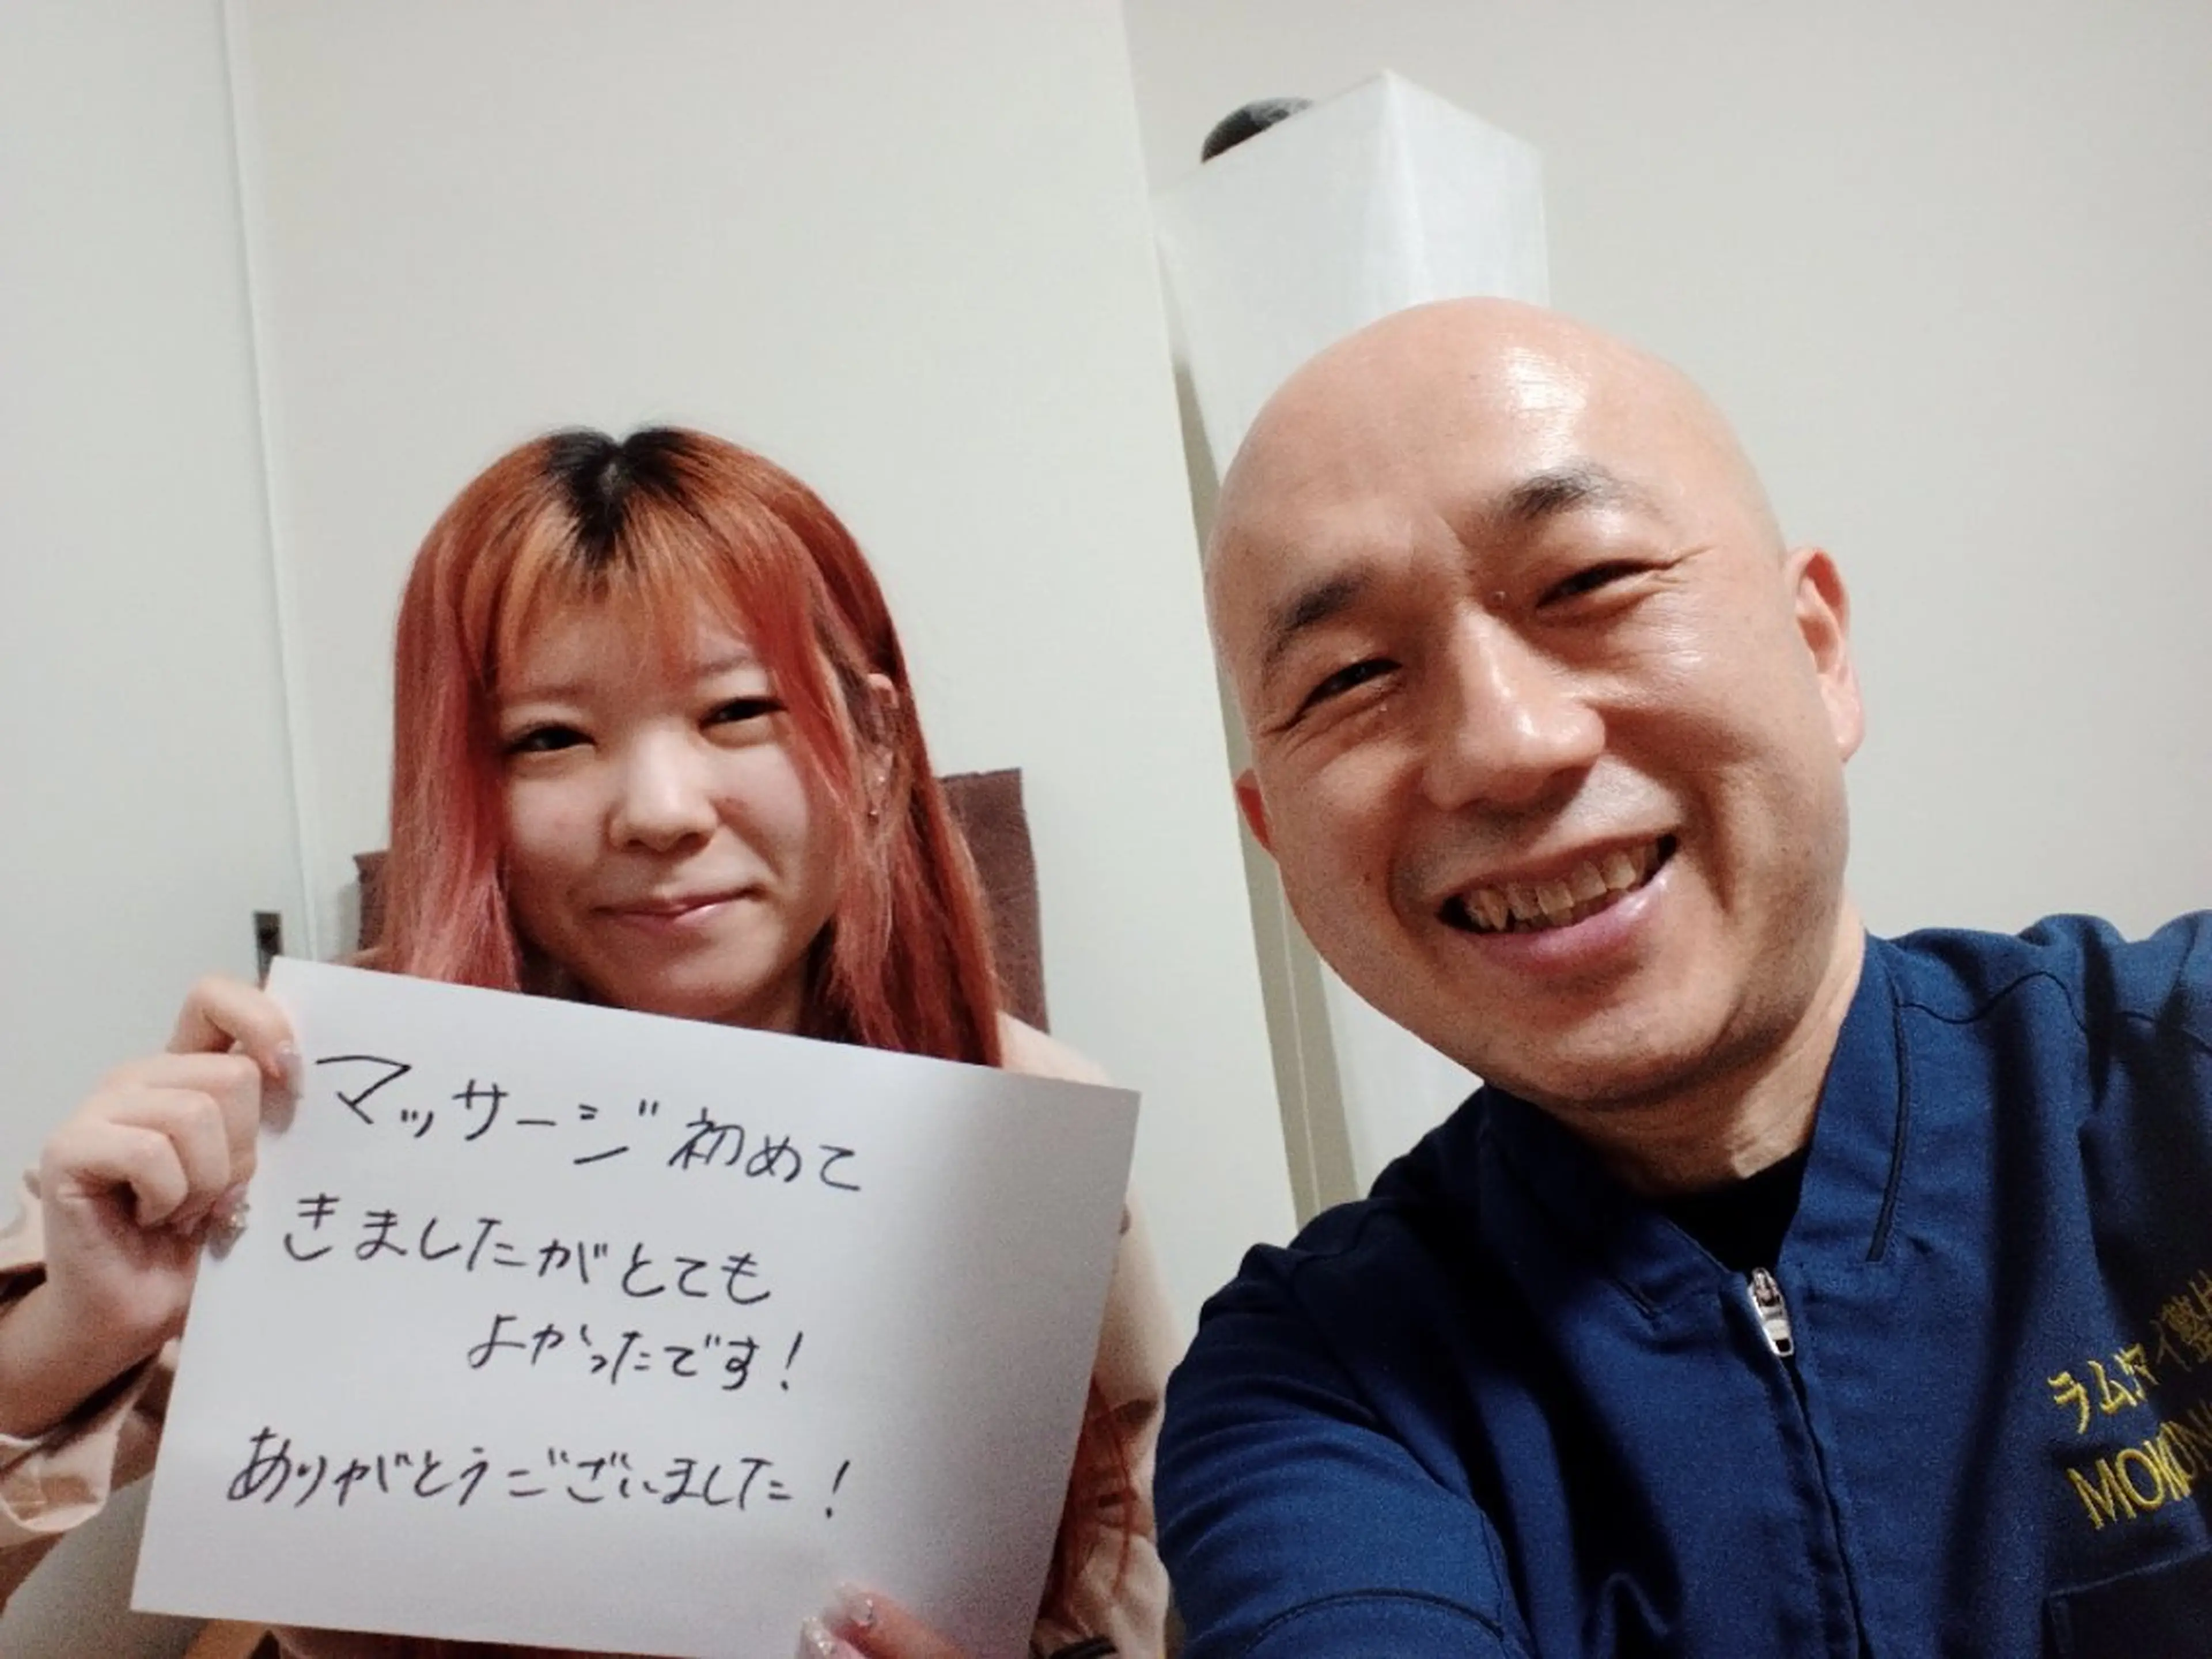 マッサージ初めて
きましたがとても
よかったです!
ありがとうございました!
ラムタイ整体